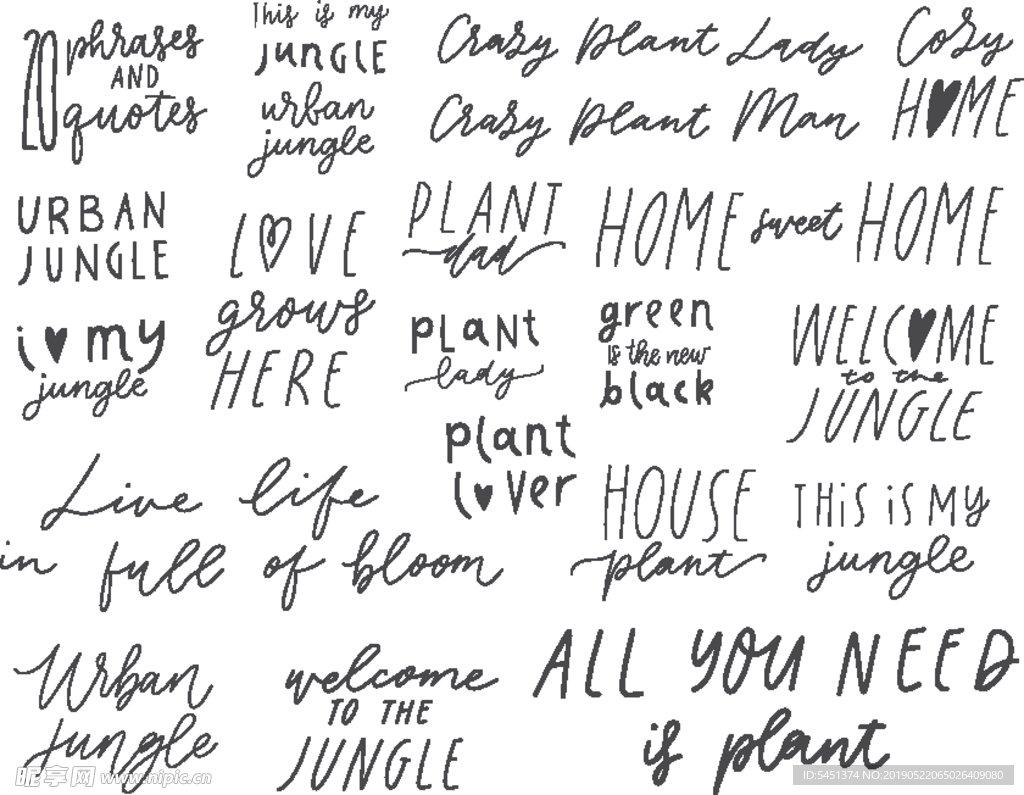 20 phrases
AND
quotes
This is my
JUNGLE
urban
jungle
Crasy plant Lady
Crasy plant Man
Cosy
HOME
URBAN
JUNGLE
LOVE
grows
HERE
PLANT
dad
HOME sweet HOME
i ♥ my
jungle
PLANT
lady
green
is the new
black
WELCOME
to the
JUNGLE
plant
lover
Live life
in full of bloom
HOUSE
plant
THiS iS MY
jungle
Urban
jungle
welcome
TO THE
JUNGLE
ALL YOU NEED
is plant
昵享网 www.nipic.cn
ID:5451374 NO:20190522065026409080